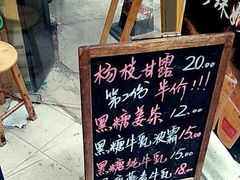 杨枝甘露 20.00
第2份 半价!!!
黑糖姜茶 12.00
黑糖牛乳波霸 15.00
黑糖纯牛乳 15.00
黑糖燕麦牛乳 18.00